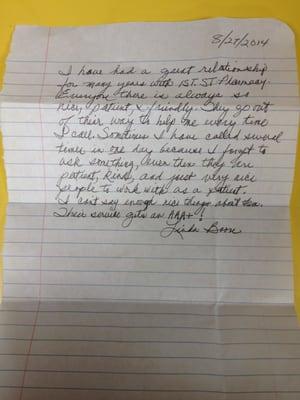 8/27/2014
I have had a great relationship
for many years with 1ST. ST Pharmacy.
Everyone there is always so
nice, patient, & friendly. They go out
of their way to help me every time
I call. Sometimes I have called several
times in one day because I forget to
ask something, even then they are
patient, kind, and just very nice
people to work with as a patient.
I can't say enough nice things about them.
Their service gets an AAA+!
Linda